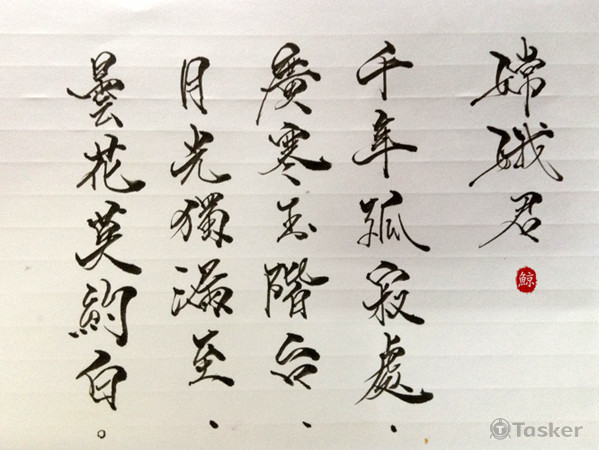 嫦娥君
鯨
千年孤寂處、
廣寒玉階台、
月光獨滿至、
曇花莫約白。
Tasker